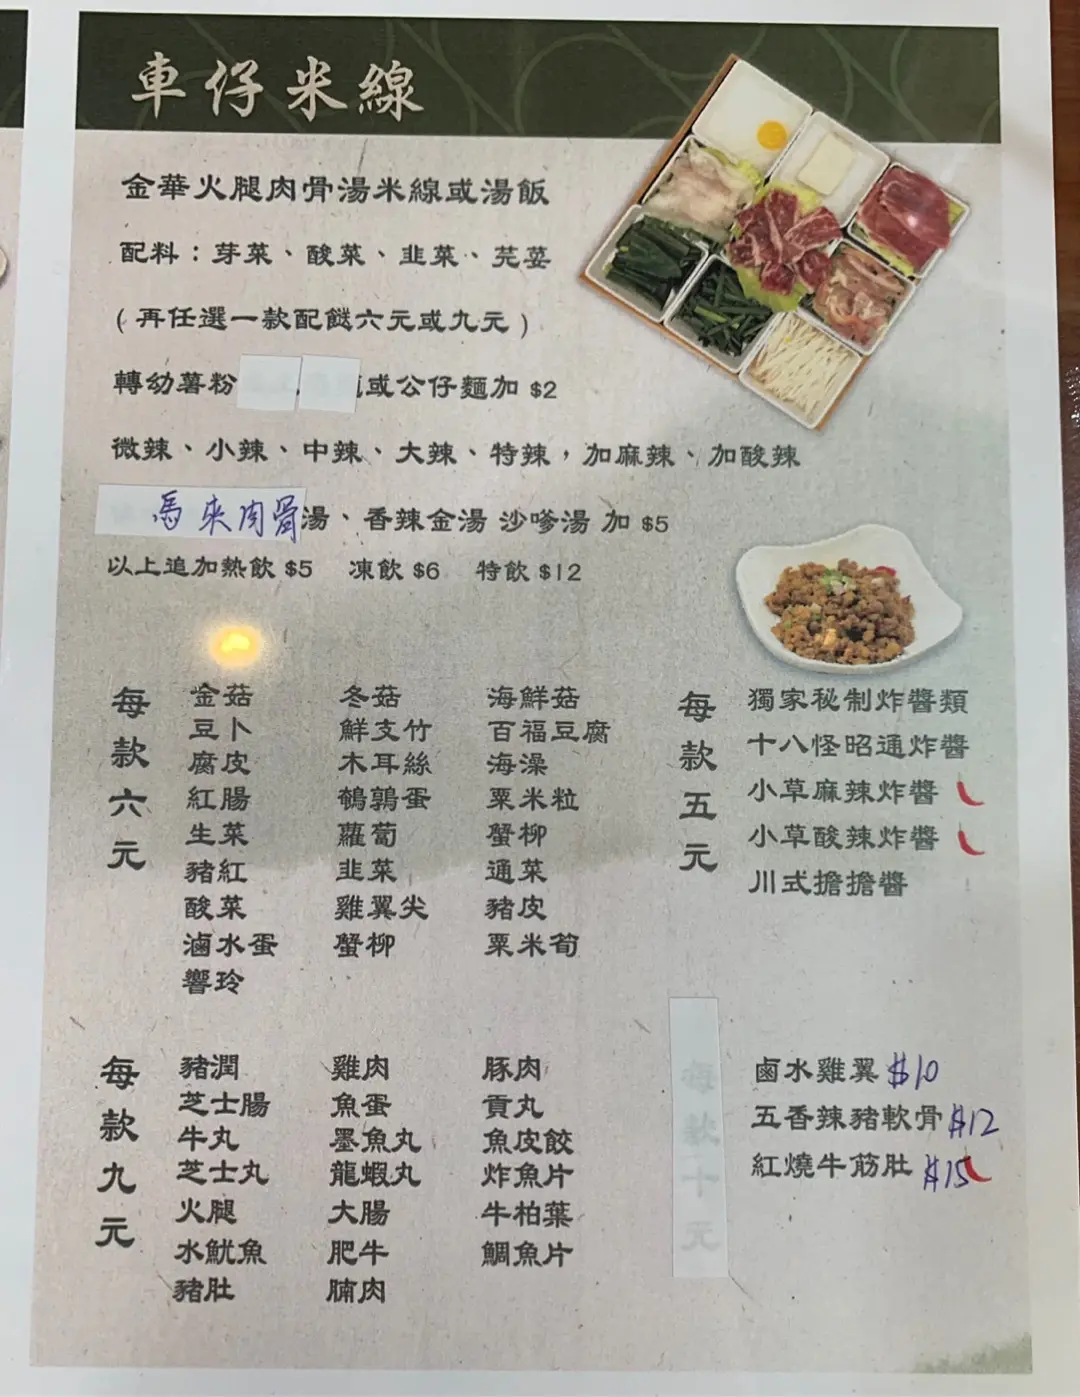 車仔米線
金華火腿肉骨湯米線或湯飯
配料：芽菜、酸菜、韭菜、芫荽
(再任選一款配餸六元或九元)
轉幼薯粉 或公仔麵加 $2
微辣、小辣、中辣、大辣、特辣，加麻辣、加酸辣
馬來肉骨湯、香辣金湯 沙嗲湯 加 $5
以上追加熱飲 $5 凍飲 $6 特飲 $12
每款六元
金菇 冬菇 海鮮菇
豆卜 鮮支竹 百福豆腐
腐皮 木耳絲 海澡
紅腸 鵪鶉蛋 粟米粒
生菜 蘿蔔 蟹柳
豬紅 韭菜 通菜
酸菜 雞翼尖 豬皮
滷水蛋 蟹柳 粟米筍
響玲
每款五元
獨家秘制炸醬類
十八怪昭通炸醬
小草麻辣炸醬
小草酸辣炸醬
川式擔擔醬
每款九元
豬潤 雞肉 豚肉
芝士腸 魚蛋 貢丸
牛丸 墨魚丸 魚皮餃
芝士丸 龍蝦丸 炸魚片
火腿 大腸 牛柏葉
水魷魚 肥牛 鯛魚片
豬肚 腩肉
每款十元
鹵水雞翼 $10
五香辣豬軟骨 $12
紅燒牛筋肚 $15